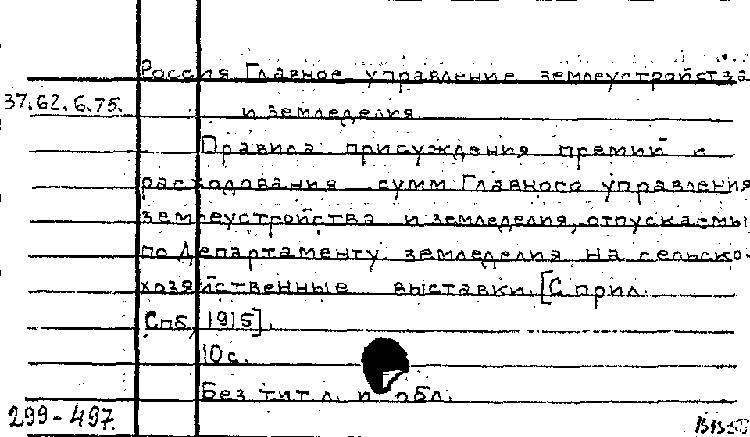 Россия. Главное управление землеустройства
37.62.6.75.
и земледелия.
Правила присуждения премий и
расходования сумм Главного управления
землеустройства и земледелия, отпускаемы
по Департаменту земледелия на сельско-
хозяйственные выставки. [С прил.
Спб, 1915].
10 с.
Без тит. л. и обл.
299-497.